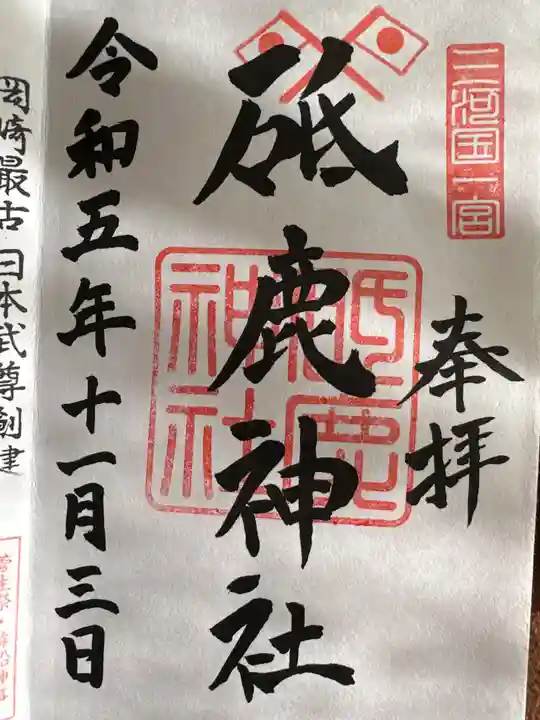 三河国一宮
奉拝
砥鹿神社
砥鹿神社
令和五年十一月三日
岡崎最古 日本武尊創建